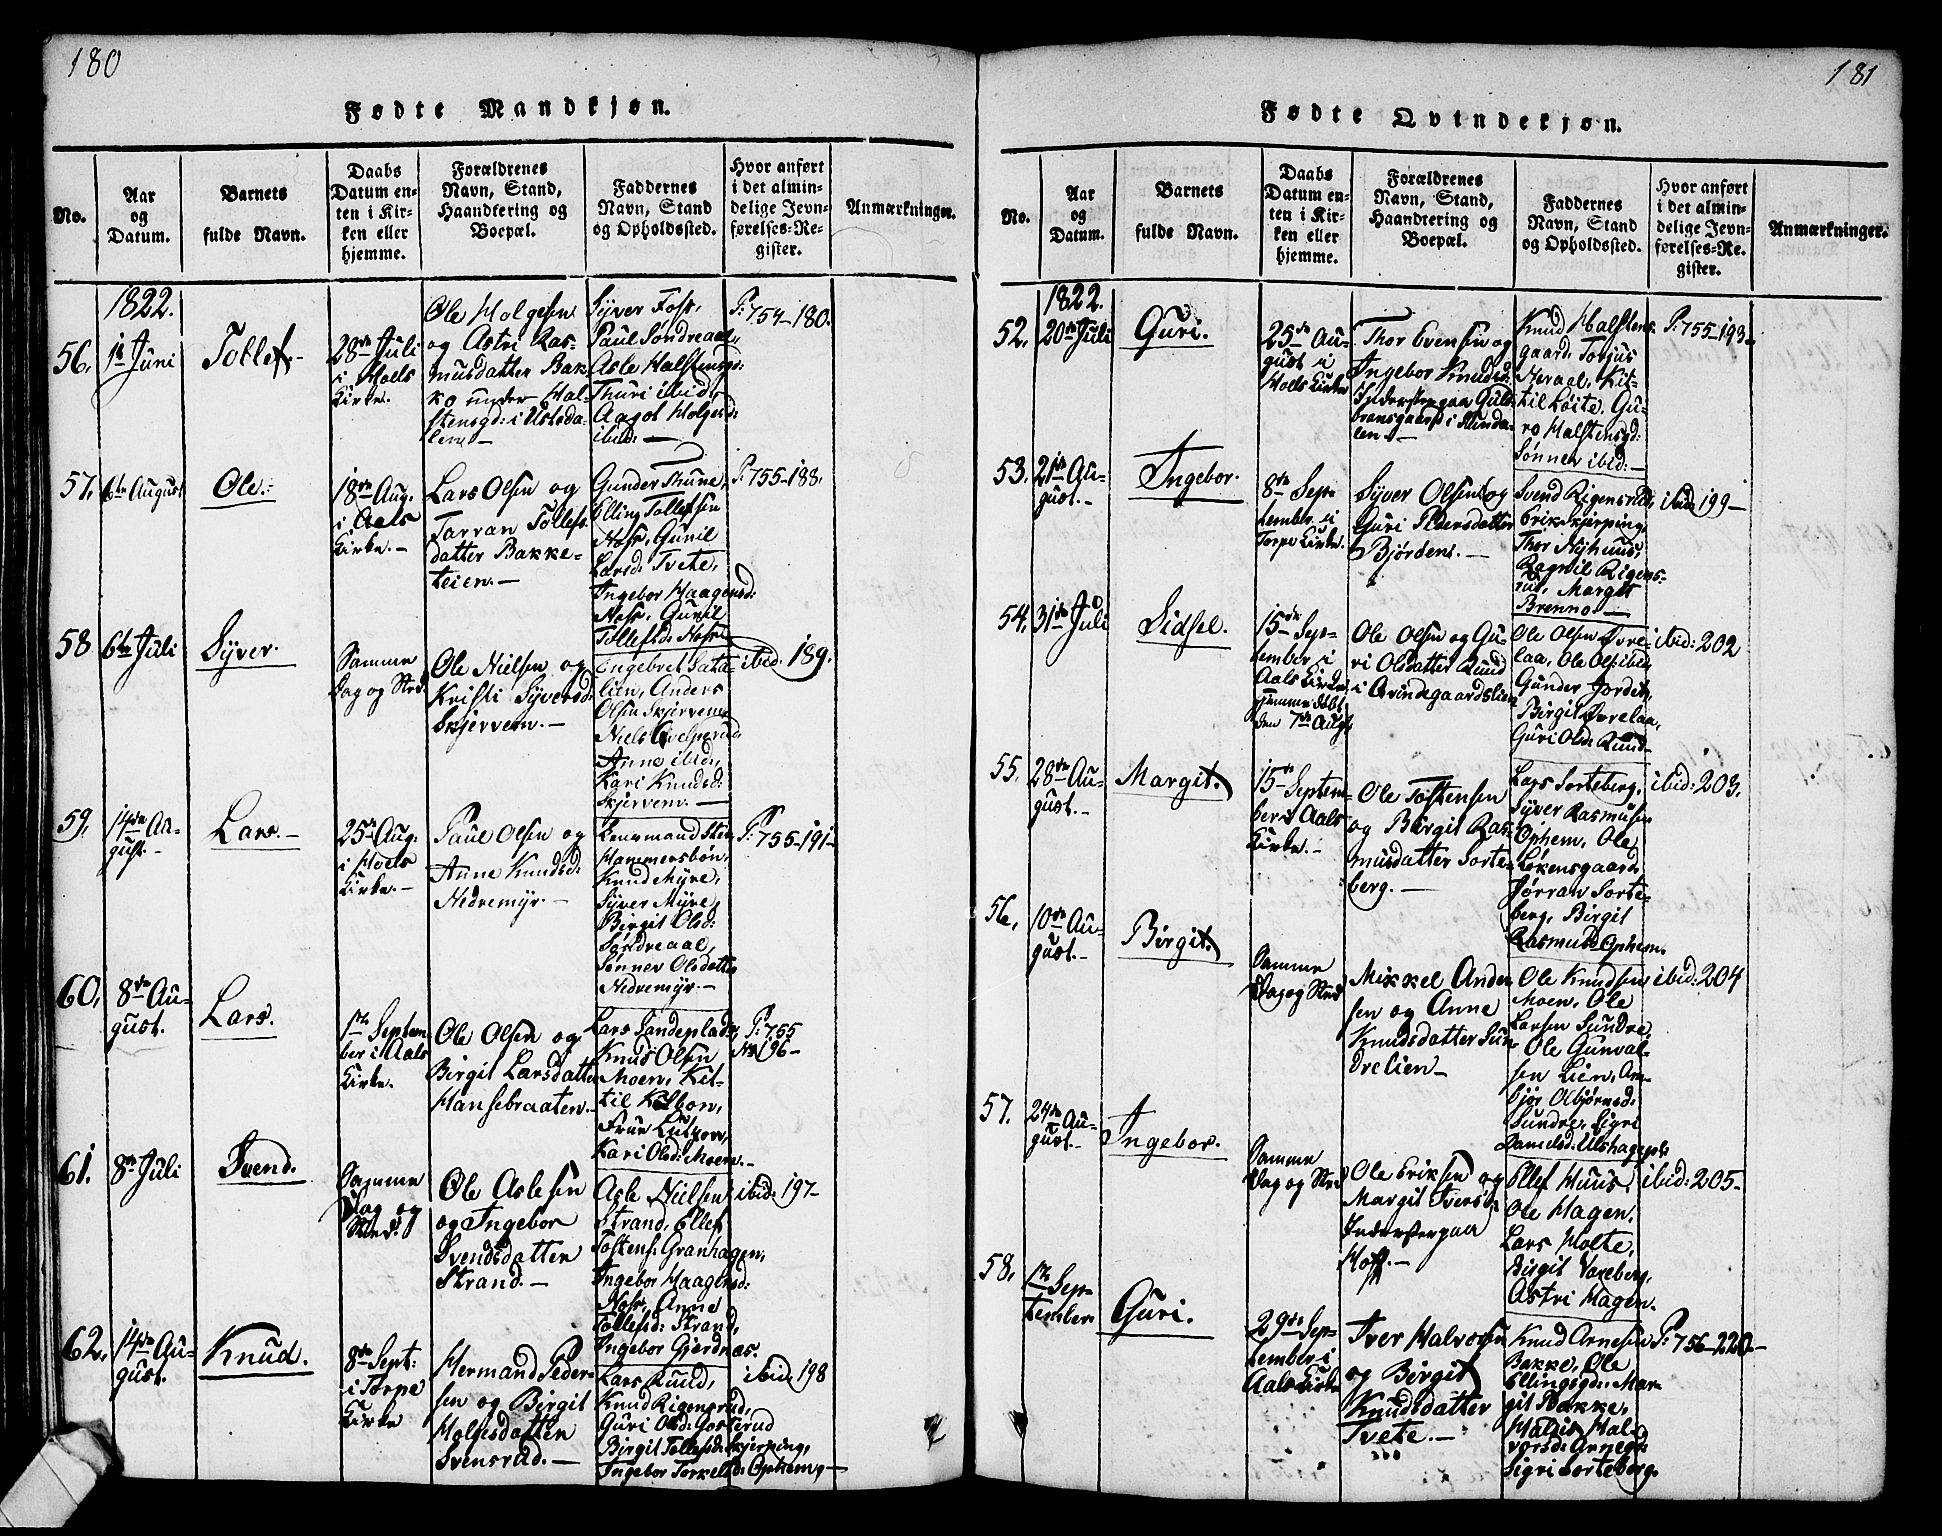 180
Fødte Mandkjøn.
No.
Aar
og
Datum.
Barnets
fulde Navn.
Daabs
Datum en-
ten i Kir-
ken eller
hjemme.
Forældrenes
Navn, Stand,
Haandtering og
Boepæl.
Faddernes
Navn, Stand
og Opholdssted.
Hvor anført
i det almin-
delige Jevn-
førelses-Re-
gister.
Anmærkninger.
1822.
56.
Juni
Tollef.
28de Juli
i Hols
Kirke.
Ole Holgesen
og Astri Ras-
musdatter Bak-
ko under Hal-
stensgd: i Usteda-
len. —
Syver Foss,
Paul Søndreaal,
Asle Halstensgd:
Thuri ibid:
Aagot Holgesd:
ibid: —
P: 754-180.
57.
6te August
Ole.
18de Aug.
i Aals
Kirke. —
Lars Olsen og
Jørran Tollefs-
datter Bakke-
teien. —
Gunder Thune,
Elling Tollefsen
Noss, Guril
Larsd: Tvete,
Ingebor Haagensd:
Noss, Guril
Tollefsd: Noss.
P: 755-188.
58
6te Juli
Syver.
Samme
Dag og Sted.
Ole Nielsen og
Kristi Syversd:
Skjervem. —
Engebret Sata-
lien, Anders
Olsen Skjervem
Niels
Anne ibid,
Kari Knudsd:
Skjervem. —
ibid. 189.
59.
14de Au-
gust. —
Lars. —
25de Aug.
i Hols
Kirke. —
Paul Olsen og
Anne Knudsd:
Nedremyr. —
Lensmand Sten
Hammersbøn,
Knud Myre,
Syver Myre,
Birgit Olsd:
Søndreaal,
Sønnev Olsdatter
Nedremyr. —
P: 755-191-
60.
8de Au-
gust.
Lars.
1ste Septem-
ber i Aals
Kirke.
Ole Olsen og
Birgit Larsdatter
Hansebraaten. —
Lars Sandeplads,
Knud Olsen
Moen, Kit-
til Kolbon,
Frue Lutzow,
Kari Olsd: Moen. —
P: 755
No 196-
61.
8de Juli
Svend.
Samme
Dag og
Sted.
Ole Aslesen
og Ingebor
Svendsdatter
Strand. —
Asle Nielsen
Strand, Ellef
Tostens: Granhagen,
Ingebor Haagensd:
Noss, Anne
Tollefsd: Strand,
Ingebor Gjerdnæs.
ibid: 197-
62.
14de Au-
gust.
Knud.
8de Sept:
i Torpe
Kirke
Hermand Peder-
sen og Birgit
Holgesdatter
Svensrud. —
Lars Ruud,
Knud Rigensrud,
Guri Olsd: Gosterud
Birgit Tollefsd: Skjerping,
Ingebor Torkelsd: Ophem, —
ibid. 198
181
Fødte Qvindekjøn.
No.
Aar
og
Datum.
Barnets
fulde Navn.
Daabs
Datum en-
ten i Kir-
ken eller
hjemme.
Forældrenes
Navn, Stand,
Haandtering og
Boepæl.
Faddernes
Navn, Stand
og Opholdssted.
Hvor anført
i det almin-
delige Jevn-
førelses-Re-
gister.
Anmærkninger.
1822.
52.
20de Juli
Guri.
25de Au-
gust i
Hols Kirke
Thor Evensen og
Ingebor Knudsd:
Inderster paa Gul-
bransgaard i
len. —
Knud Halstens-
gaard, Torjus
Neraal, Kit-
til Løite, Gu-
ro Halstensgd:
Sønnev ibid: —
P: 755-193.
53.
21de Au-
gust. —
Ingebor.
8de Sep-
tember i
Torpe Kirke.
Syver Olsen og
Guri Pedersdatter
Bjørdem. —
Svend Rigensrud,
Erik Skjerping,
Thor Nyhuus,
Ragnil Rigens-
rud, Margit
Brenno. —
ibid: 199 —
54.
31de Juli
Sidsel.
15de Sep-
tember i
Aals Kirke
hjemmedøbt
den 7de Aug.
Ole Olsen og Gu-
ri Olsdatter Ruud
i Qvindegaardslien
Ole Olsen
laa, Ole Ols: ibid,
Gunder Jordet,
Birgit
Guri Olsd: Ruud —
ibid: 202
55.
28de Au-
gust. —
Margit.
15de Septem-
ber i Aals
Kirke. —
Ole Tostensen
og Birgit Ras-
musdatter Sorte-
berg. —
Lars Sorteberg,
Syver Rasmusen
Ophem, Ole
Løkensgaard,
Jørran Sorte-
berg, Birgit
Rasmusd: Ophem.
ibid: 203.
56.
10de Au-
gust. —
Birgit.
Samme
Dag og Sted
Mikkel Ander-
sen og Anne
Knudsdatter Sun-
drelien —
Ole Knudsen
Moen, Ole
Larsen Sundre,
Ole Gunval-
sen Lien, Am-
bjør Olbjørnsd:
Sundre, Sigri
Danielsd: Ulshagept.
ibid: 204
57.
24de Au-
gust. —
Ingebor.
Samme
Dag og Sted
Ole Eriksen og
Margit Iversd:
Inderster paa
Hoff. —
Ellef Huus,
Ole Hagen,
Lars Holte,
Birgit Voxeberg,
Astri Hagen.
ibid: 205-
58.
1ste Sep-
tember
Guri.
29de Sep-
tember i
Aals Kirke
Iver Halvorsen
og Birgit
Knudsdatter
Tvete. —
Knud Arnesen
Bakke, Ole
Ellingsgd: Mar-
git Bakke,
Haldis Hal-
vorsd: Arnegd:
Sigri Sorteberg.
P: 756-220-